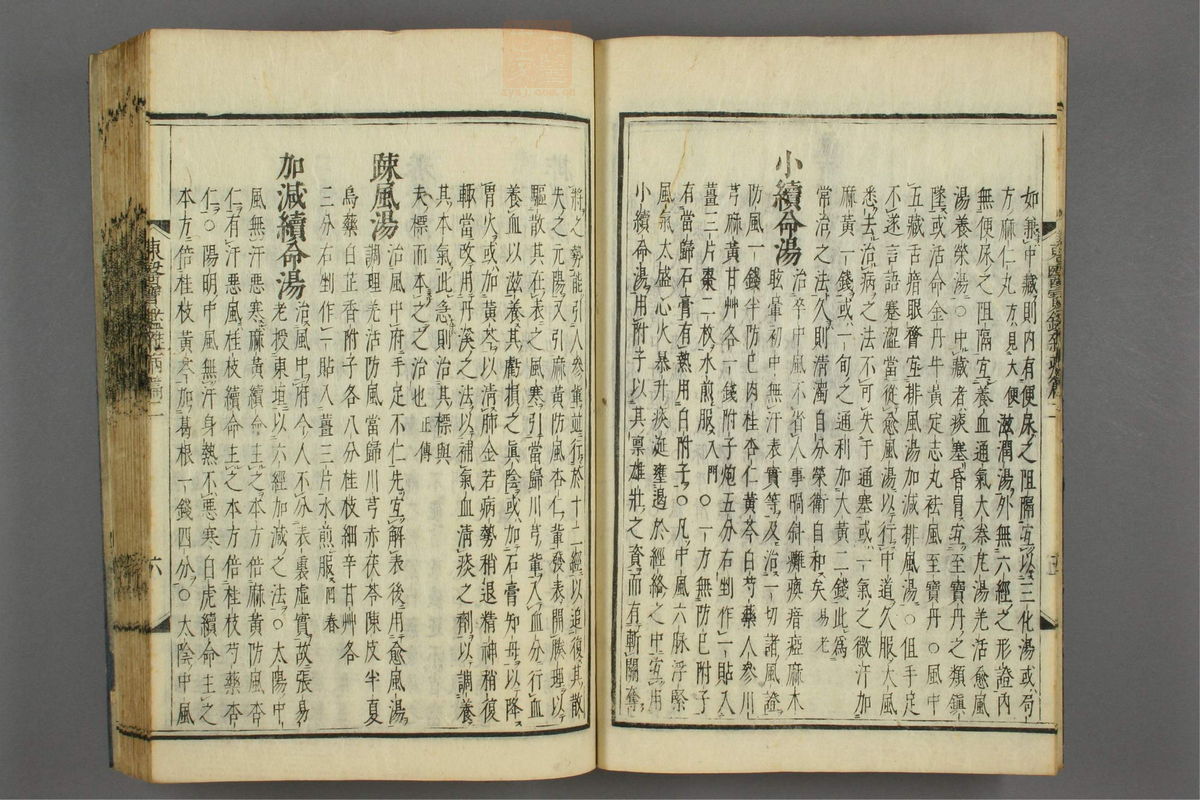 如兼中藏則內有便尿之阻隔宜以三化湯或局
方麻仁丸方見大便滋潤湯外無六經之形證內
無便尿之阻隔宜養血通氣大秦艽湯羌活愈風
湯養榮湯○中藏者痰塞昏冒宜至寶丹之類鎮
墜或活命金丹牛黃定志丸祛風至寶丹○風中
五藏舌瘖眼瞀宜排風湯加減排風湯○但手足
不遂言語蹇澁當從愈風湯以行中道久服大風
悉去治病之法不可失于通塞或一氣之微汗加
麻黃一錢或一旬之通利加大黃二錢此爲
常治之法久則清濁自分榮衛自和矣易老
小續命湯
治卒中風不省人事喎斜癱瘓瘖瘂麻木
眩暈初中無汗表實等及治一切諸風證
防風一錢半防己肉桂杏仁黃芩白芍藥人參川
芎麻黃甘艸各一錢附子炮五分右剉作一貼入
薑三片棗二枚水煎服入門○一方無防己附子
有當歸石膏有熱用白附子○凡中風六脉浮緊
風氣太盛心火暴升痰涎壅遏於經絡之中宜用
小續命湯用附子以其禀雄壯之資而有斬關奪
將之勢能引人參輩並行於十二經以追復其散
失之元陽又引麻黃防風杏仁輩發表開腠理以
驅散其在表之風寒引當歸川芎輩入血分行血
養血以滋養其虧損之眞陰或加石膏知母以降
胃火或加黃芩以清肺金若病勢稍退精神稍復
輙當改用丹溪之法以補氣血淸痰之劑以調養
其本氣此急則治其標與
夫標而本之之治也正傳
疎風湯
治風中府手足不仁先宜解表後用愈風湯
調理羌活防風當歸川芎赤茯苓陳皮半夏
烏藥白芷香附子各八分桂枝細辛甘艸各
三分右剉作一貼入薑三片水煎服回春
加減續命湯
治風中府今人不分表裏虛實故張易
老授東垣以六經加減之法○太陽中
風無汗惡寒麻黃續命主之本方倍麻黃防風杏
仁有汗惡風桂枝續命主之本方倍桂枝芍藥杏
仁○陽明中風無汗身熱不惡寒白虎續命主之
本方倍桂枝黃芩加葛根一錢四分○太陰中風
六